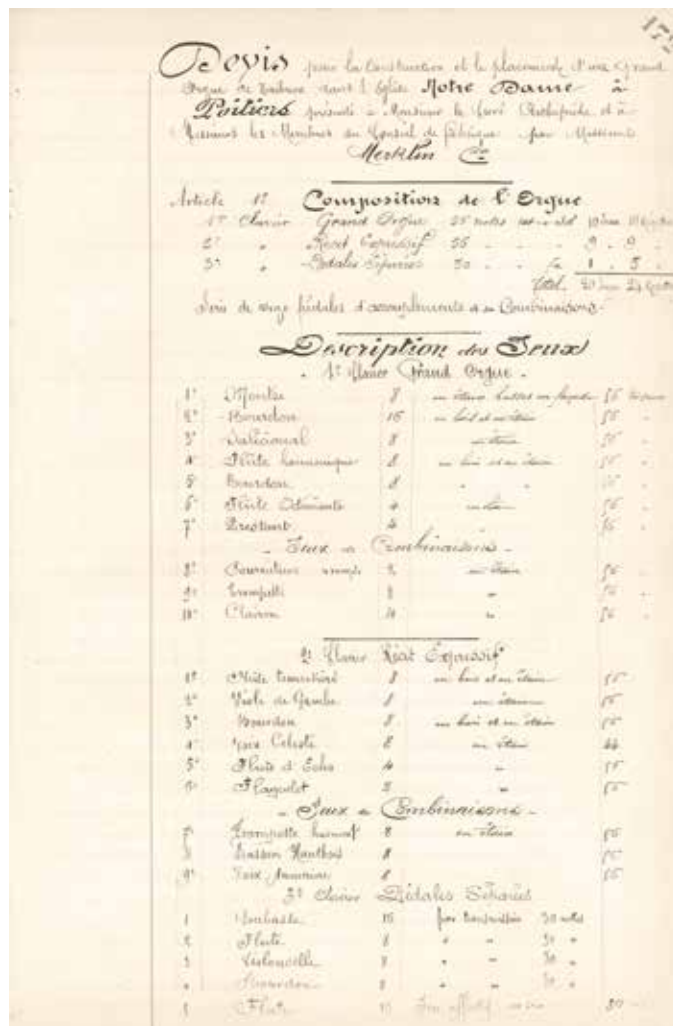 175
Devis pour la Construction et le placement d'une Grand
Orgue de Tribune dans l'Eglise Notre Dame à
Poitiers présenté à Monsieur le Curé Archiprêtre et à
Messieurs les Membres du Conseil de fabrique par Messieurs
Merklin Cie
Article 1er Composition de l'Orgue
1er Clavier Grand Orgue 56 notes 10 jeux
2e " Récit Expressif 56 " " 9 " 9 "
3e " Pedales Séparées 30 " " 1 " 5 "
Total 20 jeux 24
Série de pédales d'accouplements et de Combinaisons
Description des Jeux
1er Clavier Grand Orgue
1° Montre 8 en étain basses en façade 56
2° Bourdon 16 en bois et en étain 56 "
3° Salicional 8 en étain 56 "
4° Flûte harmonique 8 en bois et en étain 56 "
5° Bourdon 8 " " 56 "
6° Flûte Octaviante 4 en étain 56 "
7° Prestant 4 56 "
Jeux de Combinaisons
8° Fourniture en étain 56 "
9° Trompette 8 " 56 "
10° Clairon 4 " 56 "
2e Clavier Récit Expressif
1° Flûte 8 en bois et en étain 56
2° Viole de Gambe 8 en étain 56
3° Bourdon 8 en bois et en étain 56
4° Voix Celeste 8 en étain 44
5° Flute d'Echo 4 " 56
6° Flageolet 2 " 56
Jeux de Combinaisons
7° Trompette harmoniq 8 en étain 56
8 Basson Hautbois 8 56
9° Voix humaine 8 56
3e Clavier Pédales Séparées
1 Soubasse 16 par transmission 30 notes
2 Flute 8 " " 30 "
3 Violoncelle 8 " " 30 "
4 Bourdon 8 " " 30 "
5 Flute 16 Jeu effectif 30